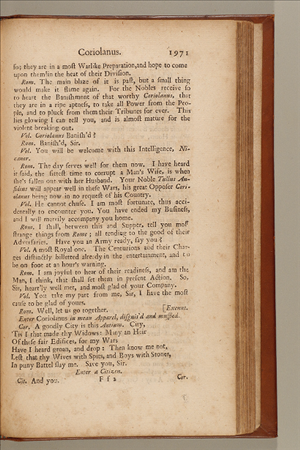 Coriolanus. 1971
for they are in a most Warlike Preparation, and hope to come
upon them in the heat of their Division.
Rom. The main blaze of it is past, but a small thing
would make it flame again. For the Nobles receive so
to heart the Banishment of that worthy Coriolanus, that
they are in a ripe aptness, to take all Power from the Peo-
ple, and to pluck from them their Tribunes for ever. This
lies glowing I can tell you, and is almost mature for the
violent breaking out.
Vol. Coriolanus Banish'd?
Rom. Banish'd, Sir.
Vol. You will be welcome with this Intelligence, Ni-
canor.
Rom. The day serves well for them now. I have heard
it said, the fittest time to corrupt a Man's Wife, is when
she's fallen out with her Husband. Your Noble Tullus Au-
fidius will appear well in these Wars, his great Opposer Cori-
olanus being now in no request of his Country.
Vol. He cannot chuse. I am most fortunate, thus acci-
dentally to encounter you. You have ended my Business,
and I will merrily accompany you home.
Rom. I shall, between this and Supper, tell you most
strange things from Rome; all tending to the good of their
Adversaries. Have you an Army ready, say you?
Vol. A most Royal one. The Centurions and their Char-
ges distinctly billetted already in the entertainment, and to
be on foot at an hour's warning.
Rom. I am joyful to hear of their readiness, and am the
Man, I think, that shall set them in present Action. So,
Sir, heartily well met, and most glad of your Company.
Vol. You take my part from me, Sir, I have the most
cause to be glad of yours.
Rom. Well, let us go together. [Exeunt.
Enter Coriolanus in mean Apparel, disguis'd and muffled.
Cor. A goodly City is this Antium. City,
'Tis I that made thy Widows: Many an Heir
Of these fair Edifices, for my Wars
Have I heard groan, and drop: Then know me not,
Lest that thy Wives with Spits, and Boys with Stones,
In puny Battel slay me. Save you, Sir.
Enter a Citizen.
Cit. And you. F f 2 Cit.